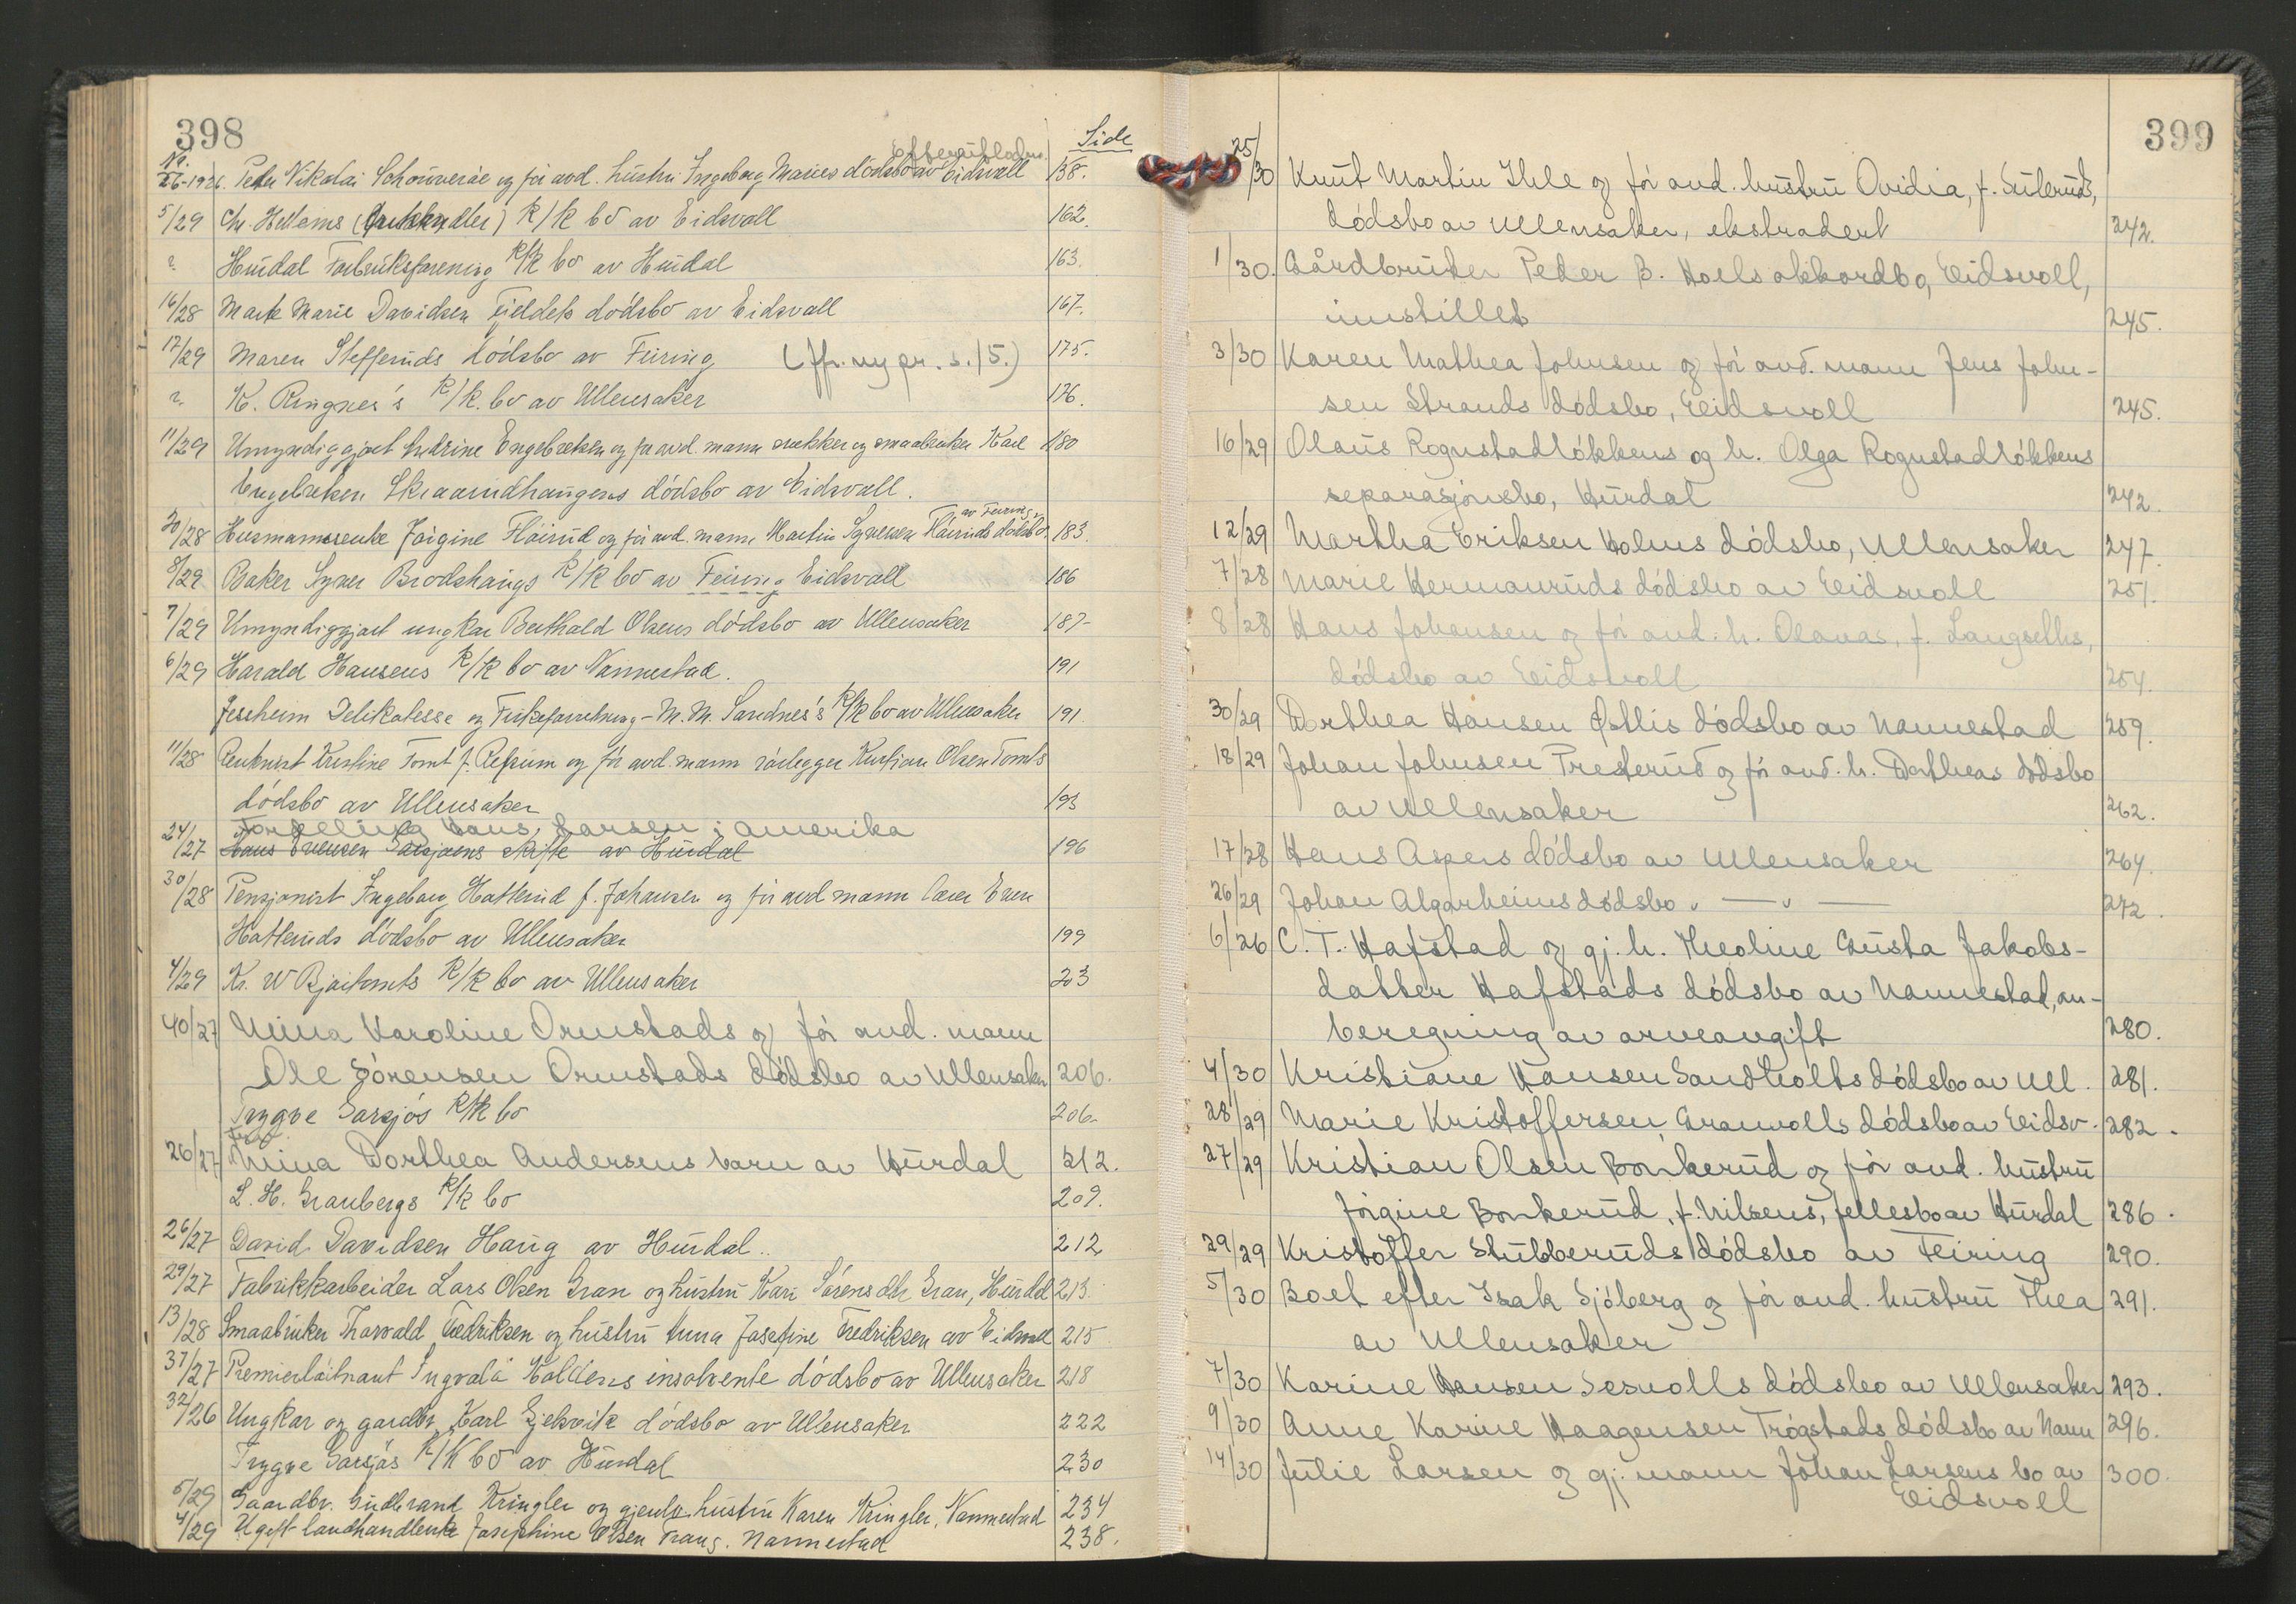 398
Side
No.
26-1926. Peder Nikolai og för avd. hustru Ingeborg Maries dödsbo av Eidsvall 158.
5/29 Chr. Hellems k/k bo av Eidsvall 162.
2. Hurdal Forbruksforening k/k bo av Hurdal 163.
16/28 Marte Marie Davidsen Fjeldets dödsbo av Eidsvall 167.
17/29 Maren Stefferuds dödsbo av Feiring (jfr. ny pr. s. 15.) 175.
2. K. Ringnes's k/k. bo av Ullensaker 176.
11/29 Umyndiggjort Engebretsen og för avd. mann snekker og smaabruker Karl 180
Engebretsen dödsbo av Eidsvall.
av Feiring
30/28 Husmannsenke Jörgine Flöirud og för avd. mann Martin Syversen Flöiruds dödsbo 183.
8/29 Baker Syver Brodshaugs k/k bo av Feiring Eidsvall 186
7/29 Umyndiggjort ungkar Berthold Olsens dödsbo av Ullensaker 187-
6/29 Harald Hansens k/k bo av Nannestad. 191
Jessheim Delikatesse og Fiskeforretning - M. M. Sandnes's k/k bo av Ullensaker 191.
11/28 Kristine Tomt f. Refsum og för avd. mann rörlegger Kristian Olsen Tomts
dödsbo av Ullensaker 193
Hans Larsen i Amerika
24/27 Hans skifte av Hurdal 196
30/28 Pensjonist Ingeborg Hatterud f. Johansen og för avd mann lærer Even
Hatteruds dödsbo av Ullensaker 199
4/29 Kr. W Bjaitomts k/k bo av Ullensaker 203
40/27 Mina Karoline Ormstads og för avd. mann
Ole Sörensen Ormstads dödsbo av Ullensaker 206.
Trygve Garsjös k/k bo 206-
26/27 Mina Dorthea Andersens barn av Hurdal 212.
L. H. Granbergs k/k bo 209.
26/27 David Davidsen Haug av Hurdal.. 212
29/27 Fabrikkarbeider Lars Olsen Gran og hustru Kari Sörensdtr Gran, Hurdal 213
13/28 Smaabruker Thorvald Fredriksen og hustru Anna Josefine Fredriksen av Eidsvall 215
37/27 Premierlöitnant Ingvald Holders insolvente dödsbo av Ullensaker 218
32/26 Ungkar og gardbr. Karl Gjelsvik dödsbo av Ullensaker 222
Trygve Garsjös k/k bo av Hurdal 230
5/29 Gaardbr. Gudbrand Kringler og gjenlev. hustru Karen Kringler, Nannestad 234
4/29 Ugift landhandlerske Josephine Olsen Nannestad 238.
399
25/30 Knut Martin Ihle og för avd. hustru Ovidia, f. Suteruds,
dödsbo av Ullensaker, ekstradert 242.
1/30. Gårdbruker Peder B. Hoels akkordbo, Eidsvoll,
innstillet 245.
3/30 Karen Mathea Johnsen og för avd. mann Jens John-
sen Strands dödsbo, Eidsvoll 245.
16/29 Olaus Rognstadlökkens og h. Olga Rognstadlökkens
separasjonsbo, Hurdal 242.
12/29 Martha Eriksen Holms dödsbo, Ullensaker 247.
7/28 Marie Hermanruds dödsbo av Eidsvoll 251.
8/28 Hans Johansen og för avd. h. Olavas, f. Langseths,
dödsbo av Eidsvoll 254.
30/29 Dorthea Hansen Østlis dödsbo av Nannestad 259.
18/29 Johan Johnsen Presterud og för avd. h. Dortheas dödsbo
av Ullensaker 262.
17/28 Hans Aspers dödsbo av Ullensaker 264.
26/29 Johan Algarheims dödsbo " — " — 272.
6/26 C. T. Hafstad og gj. h. Theoline Gusta Jakobs-
datter Hafstads dödsbo av Nannestad, an-
beregning av arveavgift 280.
4/30 Kristiane Hansen Sandholts dödsbo av Ull. 281.
28/29 Marie Kristoffersen Granvolls dödsbo av Eidsv. 282.
27/29 Kristian Olsen Bonkerud og för avd. hustru
Jörgine Bonkerud, f. Nilsens, fellesbo av Hurdal 286.
29/29 Kristoffer Stubberuds dödsbo av Feiring 290.
5/30 Boet efter Isak Sjöberg og för avd. hustru Thea 291.
av Ullensaker
7/30 Karine Hansen Sesvolls dödsbo av Ullensaker 293.
9/30 Anne Karine Haagensen Trögstads dödsbo av Nann 296.
14/30 Julie Larsen og gj. mann Johan Larsens bo av 300.
Eidsvoll